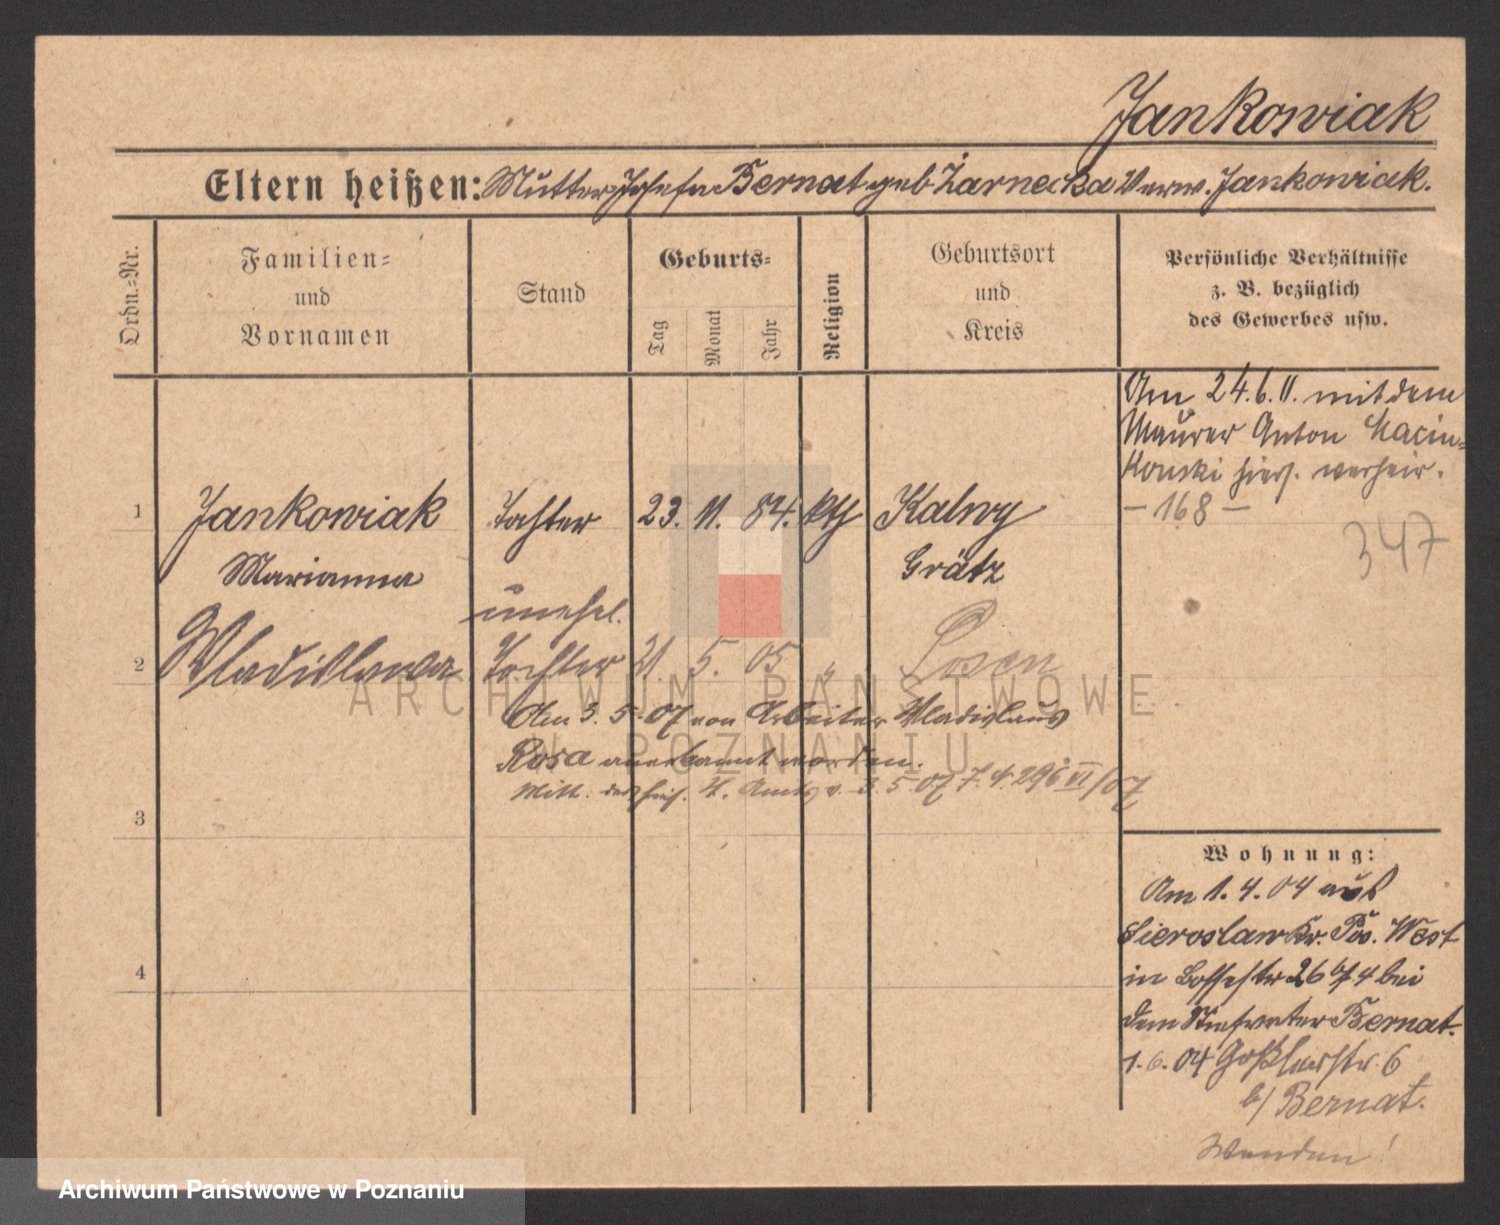 Jankowiak
Eltern heißen: Mutter Josefa Bernat geb Żarnecka Verw. Jankowiak.
Ordn.-Nr.
Familien-
und
Vornamen
Stand
Geburts-
Tag
Monat
Jahr
Religion
Geburtsort
und
Kreis
Persönliche Verhältnisse
z. B. bezüglich
des Gewerbes usw.
Am 24.6.11. mit dem
Maurer Anton Marcin-
kowski hiers. verheir.
– 168 –
347
1 Jankowiak Tochter 23. 11. 84. kth Kalwy
Marianna Grätz
unehel.
2 Wladislawa Tochter 21. 5. 05 " Posen
Am 3. 5. 07 von Arbeiter Wladislaus
Rosa anerkannt worden.
Mitt. des St. Amts v. 3. 5. 07 296 VI/07
3
4
Wohnung:
Am 1. 4. 04 aus
Sieroslaw Kr. Pos. West
in 26 bei
dem Stiefvater Bernat.
1. 6. 04 Goßlerstr. 6
b/ Bernat.
Wenden!
ARCHIWUM PAŃSTWOWE
W POZNANIU
Archiwum Państwowe w Poznaniu